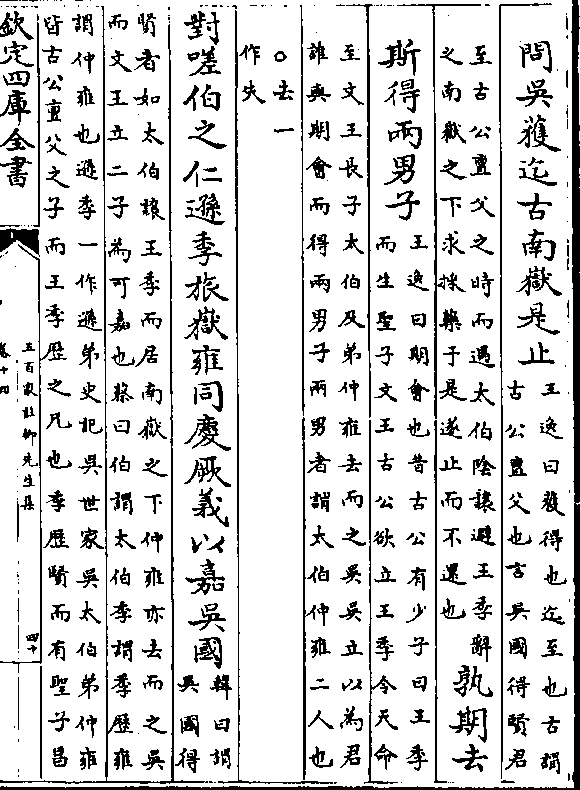 問吳獲迄古南嶽是止王逸曰獲得也迄至也古謂
古公亶父也言吳國得賢君
至古公亶父之時而遇太伯陰讓避王季辭
之南嶽之下求採藥于是遂止而不還也孰期去
斯得兩男子王逸曰期會也昔古公有少子曰王季
而生聖子文王古公欲立王季令天命
至文王長子太伯及弟仲雍去而之吳吳立以為君
誰與期會而得兩男子兩男者謂太伯仲雍二人也
○去一
作夫
對嗟伯之仁遜季旅嶽雍同慶厥義以嘉吳國韓曰謂
吳國得
賢者如太伯讓王季而居南嶽之下仲雍亦去而之吳
而文王立二子為可嘉也蔡曰伯謂太伯季謂季歷雍
謂仲雍也遜季一作遜弟史記吳世家吳太伯弟仲雍
皆古公亶父之子而王季歷之兄也季歷賢而有聖子昌
欽定四庫全書
五百家註柳先生集
卷十四
四十